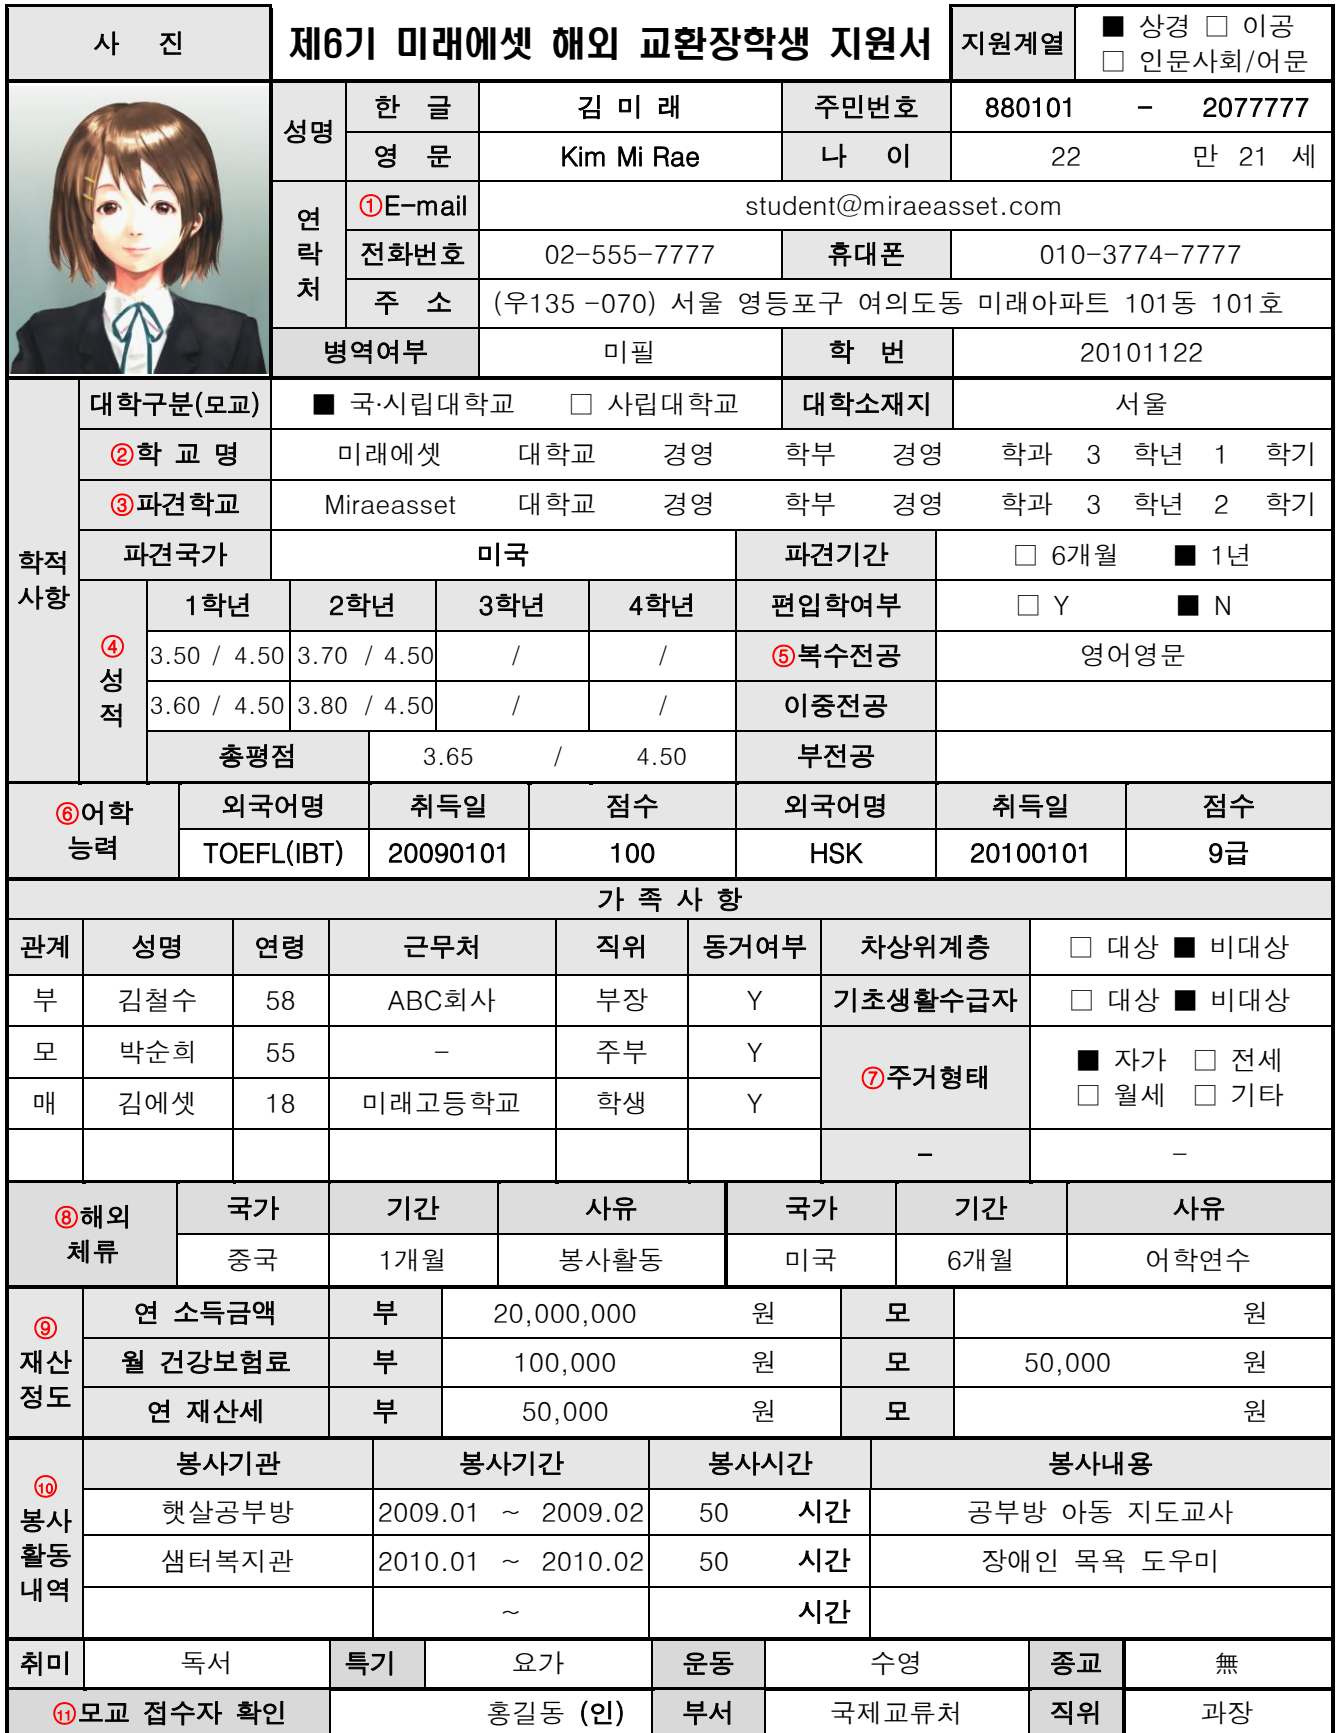 사 진 제6기 미래에셋 해외 교환장학생 지원서 지원계열 ■ 상경 □ 이공
□ 인문사회/어문
성명 한 글 김 미 래 주민번호 880101 - 2077777
영 문 Kim Mi Rae 나 이 22 만 21 세
연락처 ①E-mail student@miraeasset.com
전화번호 02-555-7777 휴대폰 010-3774-7777
주 소 (우135 -070) 서울 영등포구 여의도동 미래아파트 101동 101호
병역여부 미필 학 번 20101122
학적사항 대학구분(모교) ■ 국·시립대학교 □ 사립대학교 대학소재지 서울
②학 교 명 미래에셋 대학교 경영 학부 경영 학과 3 학년 1 학기
③파견학교 Miraeasset 대학교 경영 학부 경영 학과 3 학년 2 학기
파견국가 미국 파견기간 □ 6개월 ■ 1년
④성적 1학년 2학년 3학년 4학년 편입학여부 □ Y ■ N
3.50 / 4.50 3.70 / 4.50 / / ⑤복수전공 영어영문
3.60 / 4.50 3.80 / 4.50 / / 이중전공
총평점 3.65 / 4.50 부전공
⑥어학능력 외국어명 취득일 점수 외국어명 취득일 점수
TOEFL(IBT) 20090101 100 HSK 20100101 9급
가 족 사 항
관계 성명 연령 근무처 직위 동거여부 차상위계층 □ 대상 ■ 비대상
부 김철수 58 ABC회사 부장 Y 기초생활수급자 □ 대상 ■ 비대상
모 박순희 55 - 주부 Y ⑦주거형태 ■ 자가 □ 전세
매 김에셋 18 미래고등학교 학생 Y □ 월세 □ 기타
- -
⑧해외체류 국가 기간 사유 국가 기간 사유
중국 1개월 봉사활동 미국 6개월 어학연수
⑨재산정도 연 소득금액 부 20,000,000 원 모 원
월 건강보험료 부 100,000 원 모 50,000 원
연 재산세 부 50,000 원 모 원
⑩봉사활동내역 봉사기관 봉사기간 봉사시간 봉사내용
햇살공부방 2009.01 ~ 2009.02 50 시간 공부방 아동 지도교사
샘터복지관 2010.01 ~ 2010.02 50 시간 장애인 목욕 도우미
~ 시간
취미 독서 특기 요가 운동 수영 종교 無
⑪모교 접수자 확인 홍길동 (인) 부서 국제교류처 직위 과장